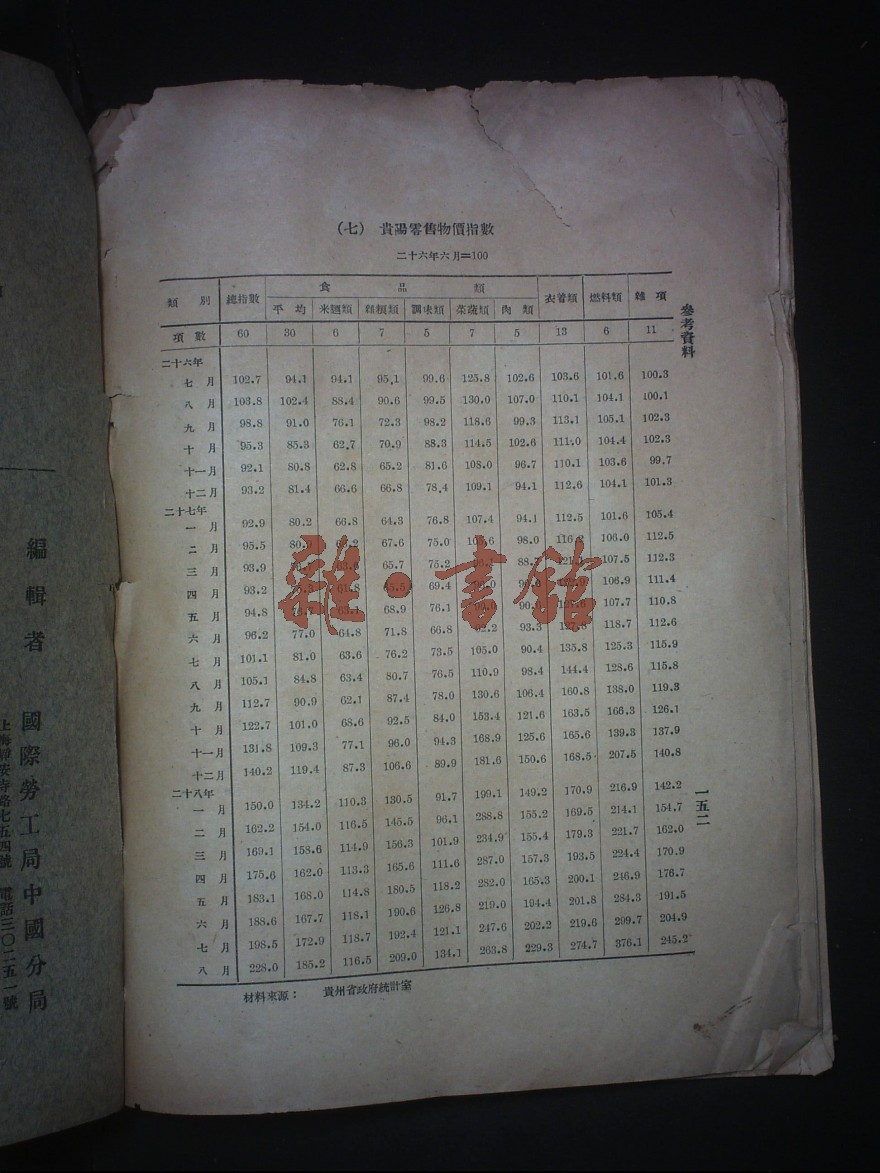 (七) 貴陽零售物價指數
二十六年六月=100
類 別 總指數 食品類 衣着類 燃料類 雜項
平均 米麵類 雜糧類 調味類 菜蔬類 肉類
項數 60 30 6 7 5 7 5 13 6 11
二十六年
七月 102.7 94.1 94.1 95.1 99.6 125.8 102.6 103.6 101.6 100.3
八月 103.8 102.4 88.4 90.6 99.5 130.0 107.0 110.1 104.1 100.1
九月 98.8 91.0 76.1 72.3 98.2 118.6 99.3 113.1 105.1 102.3
十月 95.3 85.3 62.7 70.9 88.3 114.5 102.6 111.0 104.4 102.3
十一月 92.1 80.8 62.8 65.2 81.6 108.0 96.7 110.1 103.6 99.7
十二月 93.2 81.4 66.6 66.8 78.4 109.1 94.1 112.6 104.1 101.3
二十七年
一月 92.9 80.2 66.8 64.3 76.8 107.4 94.1 112.5 101.6 105.4
二月 95.5 67.6 75.0 98.0 106.0 112.5
三月 93.9 65.7 75.2 107.5 112.3
四月 93.2 69.4 106.9 111.4
五月 94.8 68.9 76.1 107.7 110.8
六月 96.2 77.0 64.8 71.8 66.8 93.3 118.7 112.6
七月 101.1 81.0 63.6 76.2 73.5 105.0 90.4 135.8 125.3 115.9
八月 105.1 84.8 63.4 80.7 76.5 110.9 98.4 144.4 128.6 115.8
九月 112.7 90.9 62.1 87.4 78.0 130.6 106.4 160.8 138.0 119.3
十月 122.7 101.0 68.6 92.5 84.0 153.4 121.6 163.5 166.3 126.1
十一月 131.8 109.3 77.1 96.0 94.3 168.9 125.6 165.6 139.3 137.9
十二月 140.2 119.4 87.3 106.6 89.9 181.6 150.6 168.5 207.5 140.8
二十八年
一月 150.0 134.2 110.3 130.5 91.7 199.1 149.2 170.9 216.9 142.2
二月 162.2 154.0 116.5 145.5 96.1 288.8 155.2 169.5 214.1 154.7
三月 169.1 158.6 114.9 156.3 101.9 234.9 155.4 179.3 221.7 162.0
四月 175.6 162.0 113.3 165.6 111.6 287.0 157.3 193.5 224.4 170.9
五月 183.1 168.0 114.8 180.5 118.2 282.0 165.3 200.1 246.9 176.7
六月 188.6 167.7 118.1 190.6 126.8 219.0 194.4 201.8 284.3 191.5
七月 198.5 172.9 118.7 192.4 121.1 247.6 202.2 219.6 299.7 204.9
八月 228.0 185.2 116.5 209.0 134.1 263.8 229.3 274.7 376.1 245.2
材料來源： 貴州省政府統計室
參考資料
一五二
雜·書館
編輯者 國際勞工局中國分局
上海靜安寺路七五四號 電話三〇二五一號